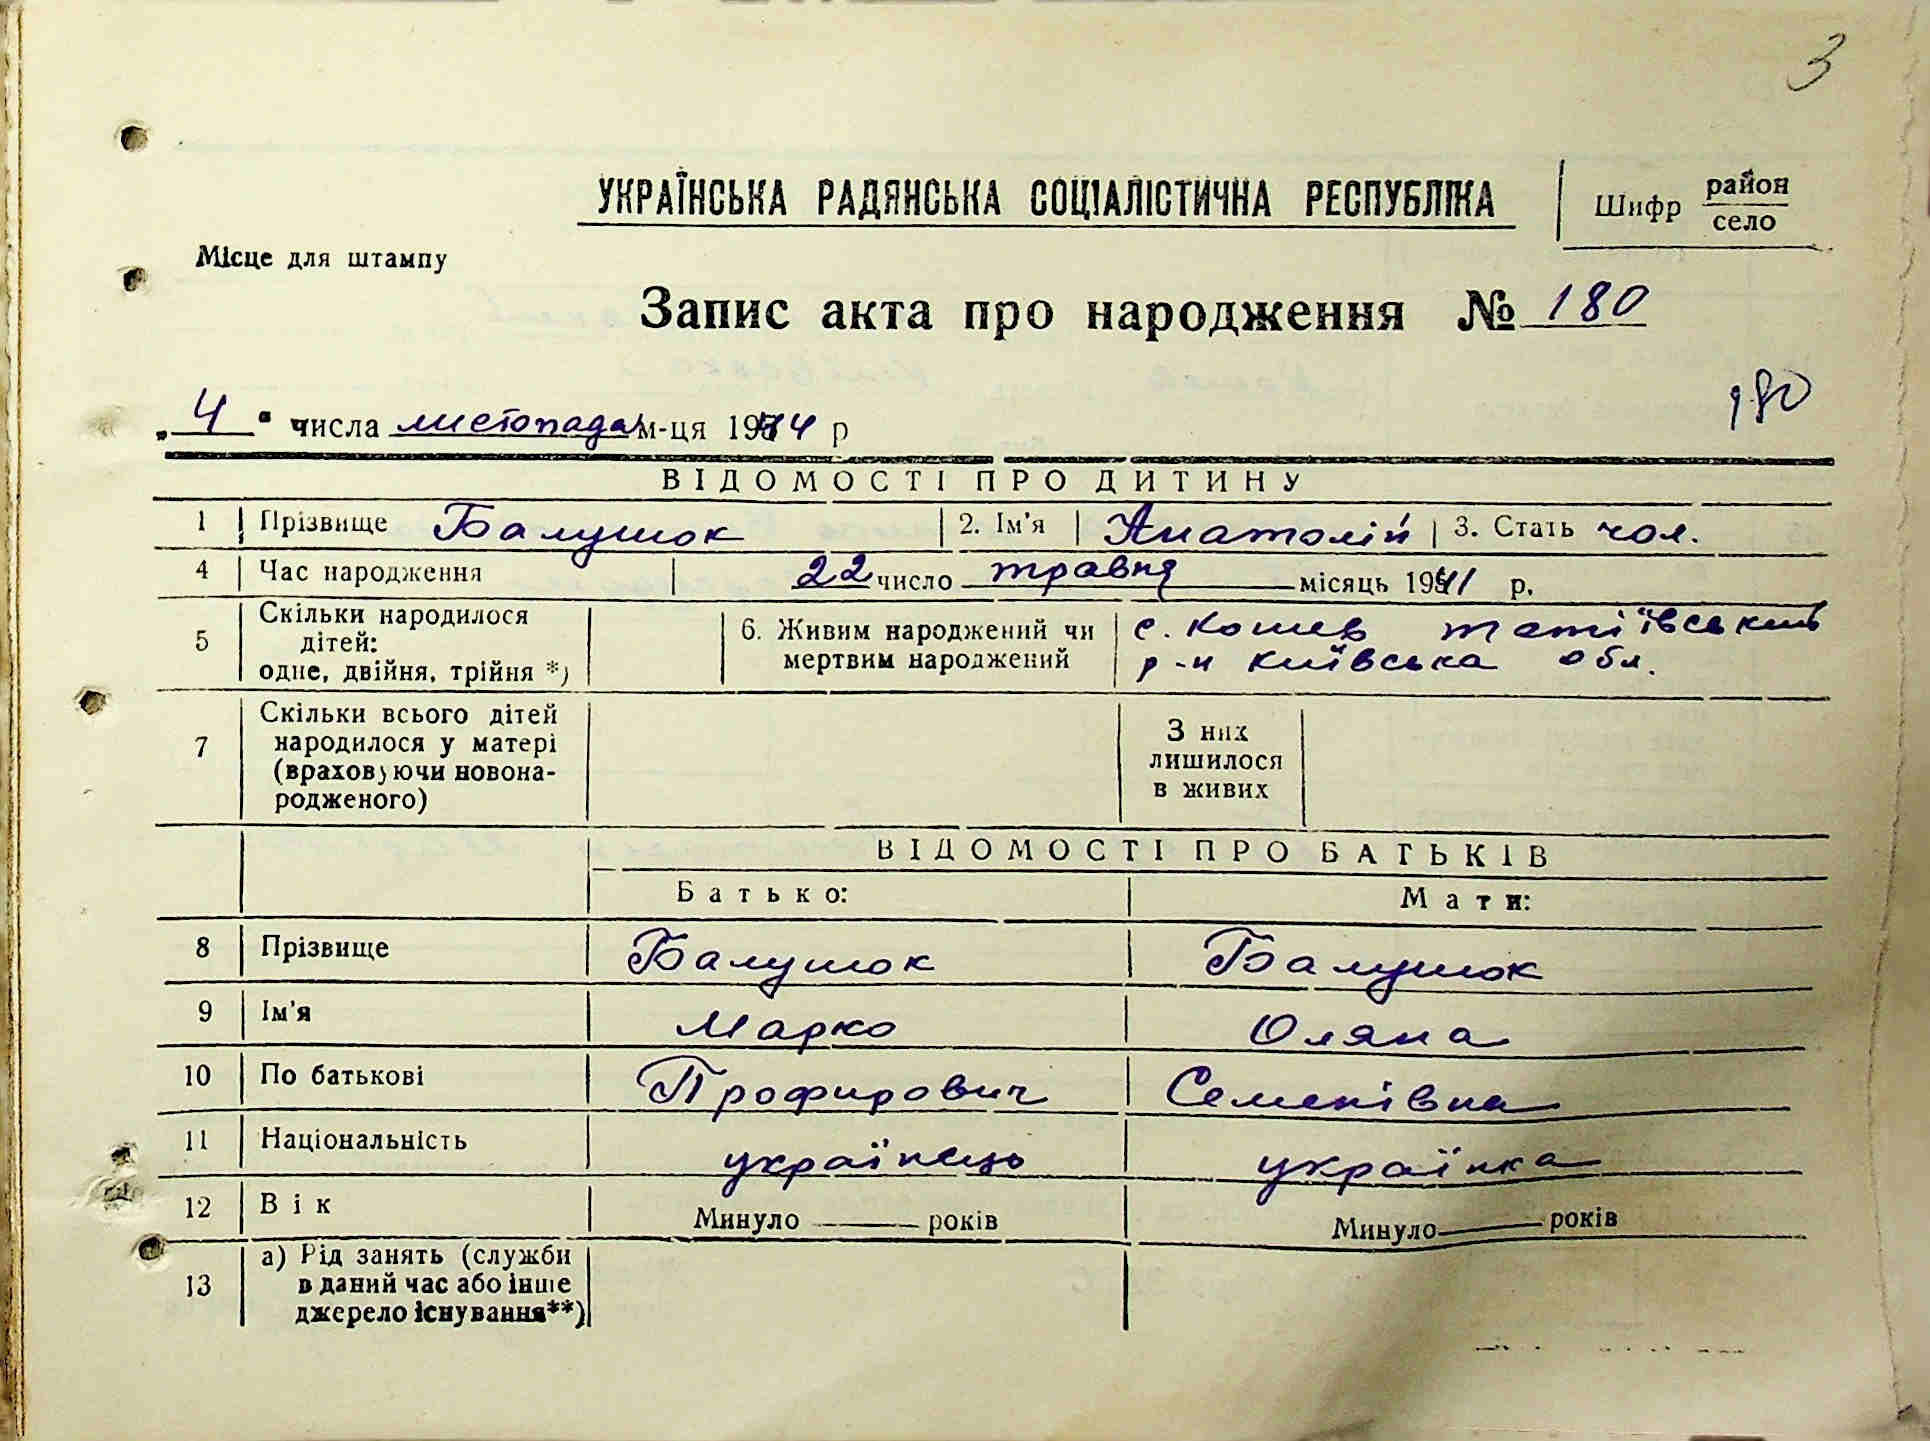 3
УКРАЇНСЬКА РАДЯНСЬКА СОЦІАЛІСТИЧНА РЕСПУБЛІКА
Шифр район
село
Місце для штампу
Запис акта про народження № 180
180
„4" числа листопада м-ця 1944 р
ВІДОМОСТІ ПРО ДИТИНУ
1 Прізвище Балушок 2. Ім'я Анатолій 3. Стать чол.
4 Час народження 22 число травня місяць 1941 р.
5 Скільки народилося дітей: одне, двійня, трійня *) 6. Живим народжений чи мертвим народжений с. Кошев Татіївський
р-н Київська обл.
7 Скільки всього дітей народилося у матері (враховуючи новонародженого) З них лишилося в живих
ВІДОМОСТІ ПРО БАТЬКІВ
Батько: Мати:
8 Прізвище Балушок Балушок
9 Ім'я Марко Оляна
10 По батькові Профирович Семенівна
11 Національність українець українка
12 Вік Минуло років Минуло років
13 а) Рід занять (служби в даний час або інше джерело існування**)